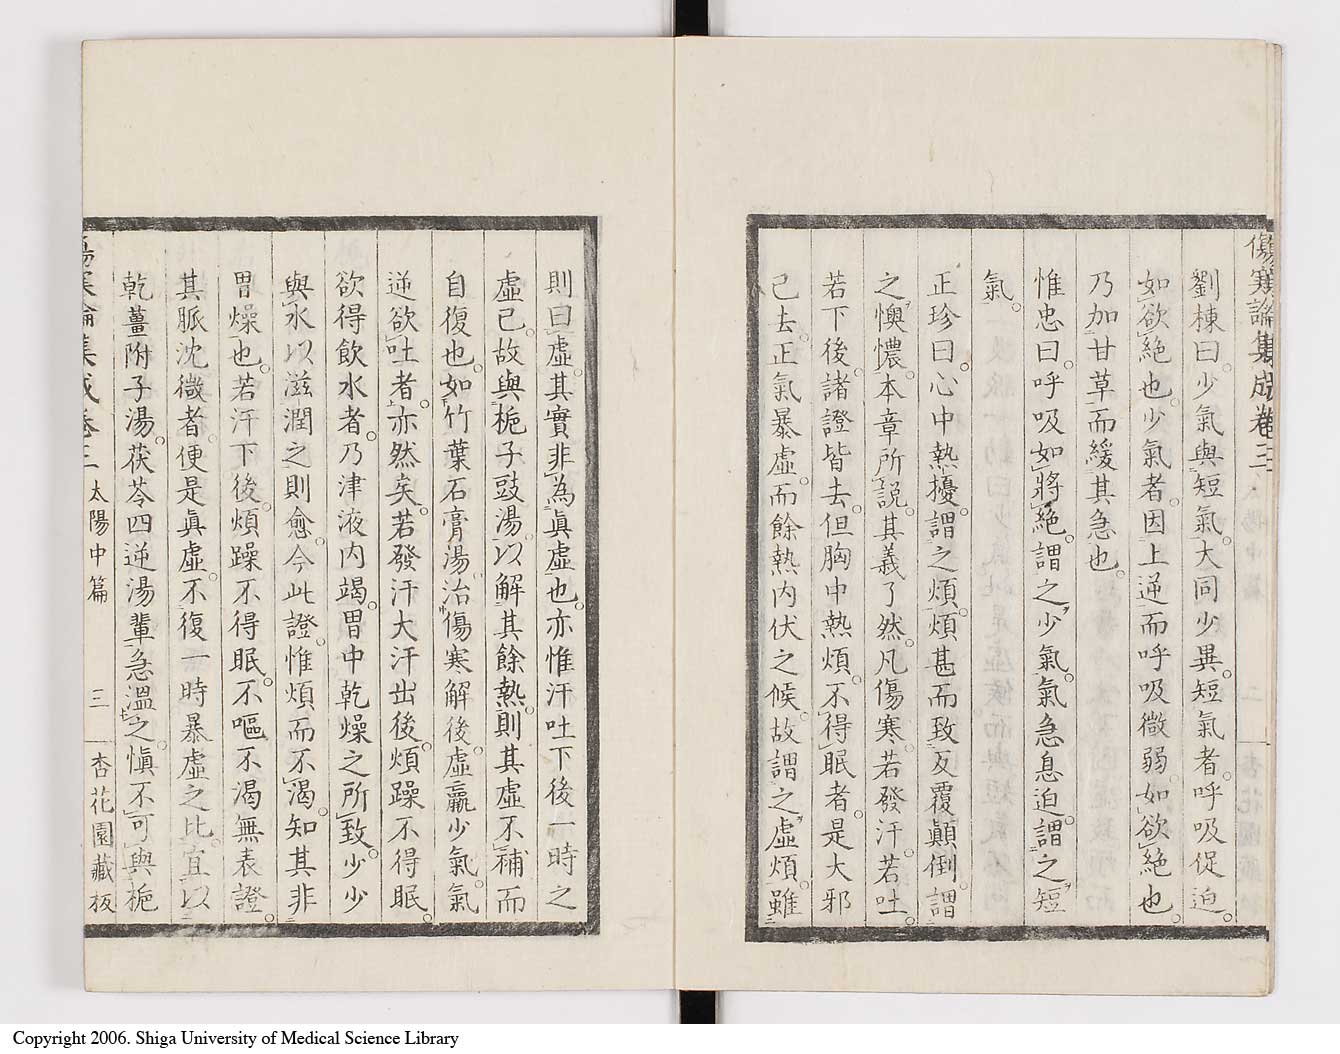 傷寒論集成卷三
劉棟曰。少氣與短氣。大同少異。短氣者。呼吸促迫。
如欲絕也。少氣者。因上逆而呼吸微弱。如欲絕也。
乃加甘草而緩其急也。
惟忠曰。呼吸如將絕。謂之少氣。氣急息迫。謂之短
氣。
正珍曰。心中熱擾。謂之煩。煩甚而致反覆顛倒。謂
之懊憹。本章所說。其義了然。凡傷寒。若發汗。若吐。
若下後。諸證皆去。但胸中熱煩。不得眠者。是大邪
已去。正氣暴虛。而餘熱內伏之候。故謂之虛煩。雖
則曰虛。其實非為眞虛也。亦惟汗吐下後一時之
虛已。故與梔子豉湯。以解其餘熱。則其虛不補而
自復也。如竹葉石膏湯。治傷寒解後。虛羸少氣。氣
逆欲吐者。亦然矣。若發汗大汗出後。煩躁不得眠。
欲得飲水者。乃津液內竭。胃中乾燥之所致。少少
與水以滋潤之則愈。今此證。惟煩而不渴。知其非
胃燥也。若汗下後。煩躁不得眠。不嘔不渴無表證。
其脈沈微者。便是眞虛。不復一時暴虛之比。宜以
乾薑附子湯。茯苓四逆湯輩。急溫之。愼不可與梔
傷寒論集成卷三 太陽中篇 三 杏花園藏板
Copyright 2006. Shiga University of Medical Science Library